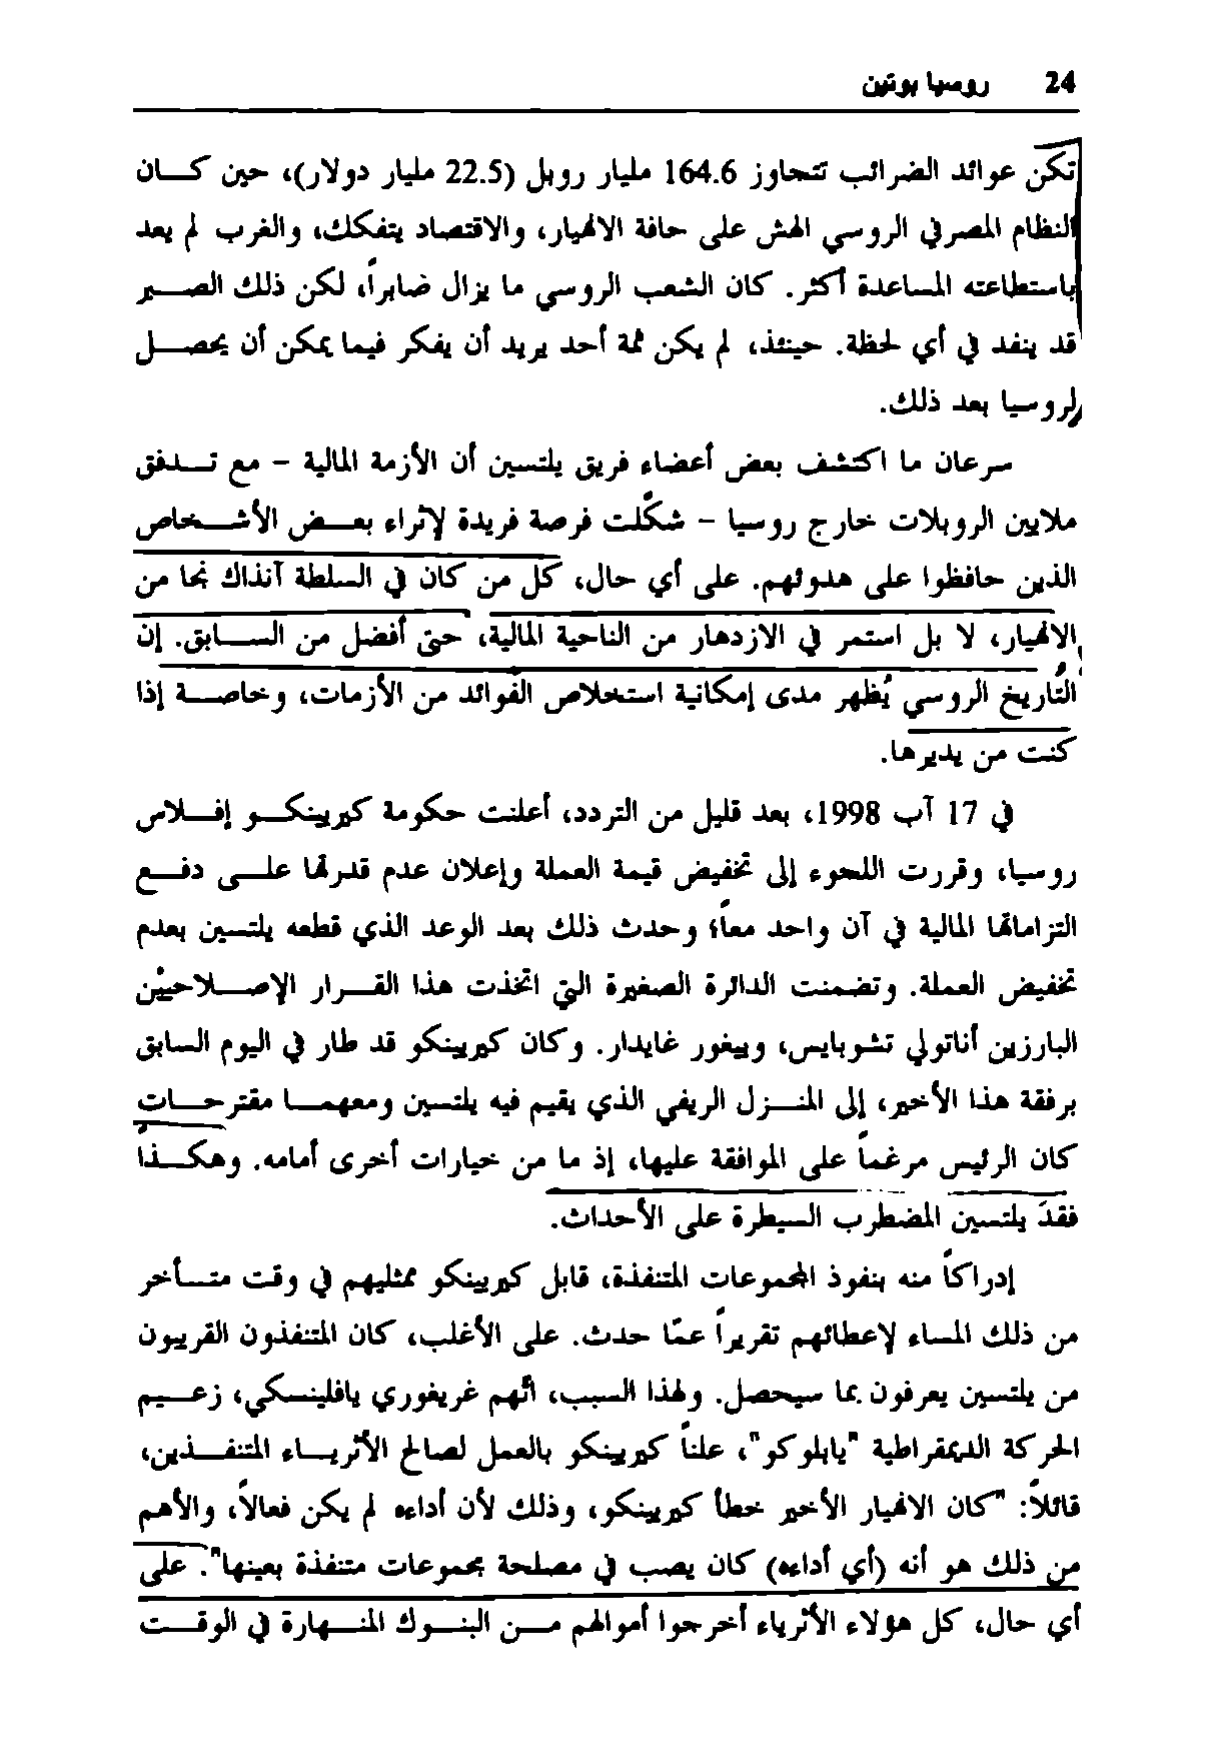 24 روسيا بوتين
تكن عوائد الضرائب تتجاوز 164.6 مليار روبل (22.5 مليار دولار)، حين كـــان
النظام المصرفي الروسي الهش على حافة الانهيار، والاقتصاد يتفكك، والغرب لم يعد
باستطاعته المساعدة أكثر. كان الشعب الروسي ما يزال صابراً، لكن ذلك الصـــبر
قد ينفد في أي لحظة. حينئذ، لم يكن ثمة أحد يريد أن يفكر فيما يمكن أن يحصـــل
لروسيا بعد ذلك.
سرعان ما اكتشف بعض أعضاء فريق يلتسين أن الأزمة المالية – مع تـــدفق
ملايين الروبلات خارج روسيا – شكّلت فرصة فريدة لإثراء بعـــض الأشـــخاص
الذين حافظوا على هدوئهم. على أي حال، كل من كان في السلطة آنذاك نجا من
الانهيار، لا بل استمر في الازدهار من الناحية المالية، حتى أفضل من الســـابق. إن
التاريخ الروسي يُظهر مدى إمكانية استخلاص الفوائد من الأزمات، وخاصـــة إذا
كنت من يديرها.
في 17 آب 1998، بعد قليل من التردد، أعلنت حكومة كيريينكـــو إفـــلاس
روسيا، وقررت اللجوء إلى تخفيض قيمة العملة وإعلان عدم قدرتها علـــى دفـــع
التزاماتها المالية في آن واحد معاً؛ وحدث ذلك بعد الوعد الذي قطعه يلتسين بعدم
تخفيض العملة. وتضمنت الدائرة الصغيرة التي اتخذت هذا القـــرار الإصـــلاحيّين
البارزين أناتولي تشوبايس، وييغور غايدار. وكان كيريينكو قد طار في اليوم السابق
برفقة هذا الأخير، إلى المنـــزل الريفي الذي يقيم فيه يلتسين ومعهمـــا مقترحـــات
كان الرئيس مرغماً على الموافقة عليها، إذ ما من خيارات أخرى أمامه. وهكـــذا
فقدَ يلتسين المضطرب السيطرة على الأحداث.
إدراكاً منه بنفوذ المجموعات المتنفذة، قابل كيريينكو ممثليهم في وقت متـــأخر
من ذلك المساء لإعطائهم تقريراً عمّا حدث. على الأغلب، كان المتنفذون القريبون
من يلتسين يعرفون بما سيحصل. ولهذا السبب، اتّهم غريغوري يافلينسكي، زعـــيم
الحركة الديمقراطية "يابلوكو"، علناً كيريينكو بالعمل لصالح الأثريـــاء المتنفـــذين،
قائلاً: "كان الانهيار الأخير خطأ كيريينكو، وذلك لأن أداءه لم يكن فعالاً، والأهم
من ذلك هو أنه (أي أداءه) كان يصب في مصلحة مجموعات متنفذة بعينها". على
أي حال، كل هؤلاء الأثرياء أخرجوا أموالهم مـــن البنـــوك المنـــهارة في الوقـــت